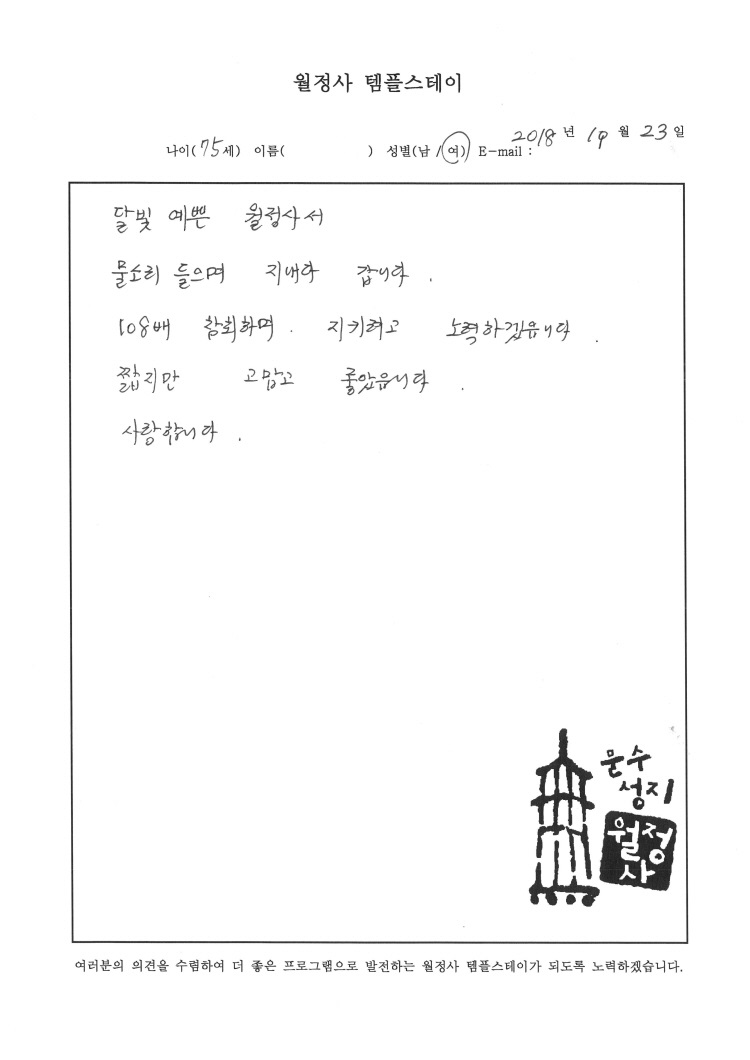 월정사 템플스테이
2018 년 월 23 일
나이( 75 세) 이름( ) 성별(남 / 여) E-mail :
달빛 예쁜 월정사서
물소리 들으며 지내다 갑니다 .
108배 참회하며 . 지키려고 노력하겠읍니다 .
짧지만 고맙고 좋았읍니다 .
사랑합니다 .
문수
성지
월정
사
여러분의 의견을 수렴하여 더 좋은 프로그램으로 발전하는 월정사 템플스테이가 되도록 노력하겠습니다.